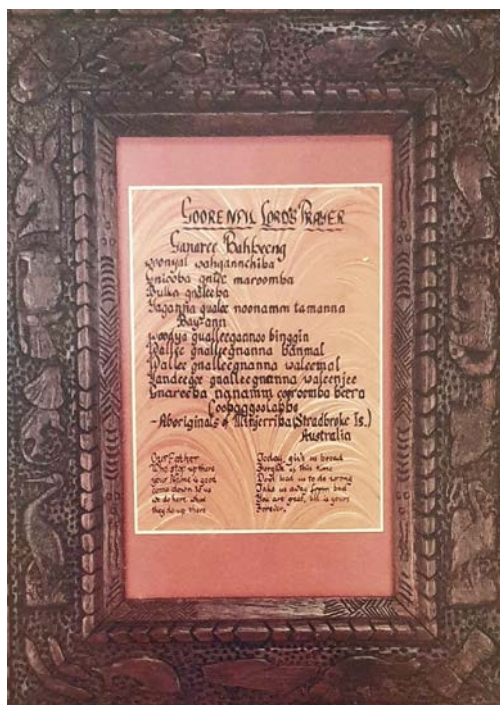 GOORENPIL LORD'S PRAYER
Ganaree Bahbeeng
woonyal wahgannchiba
gnicoba gnilee maroomba
Bulka gnaleeba
Yaganna gualee noonamm tamanna
Bay-ann
woonya gualleegannoo binggin
Wallee gnalleegnanna banmal
Wallee gnalleegnanna waleemal
Yandeegee gnalleegnanna waleenjee
Gnarooba nanamm gooroomba beera
Coobaggoolabbo
-Aboriginals of Minjerriba (Stradbroke Is.)
Australia
Our Father
Who stop up there
your Name is good
come down to us
we do here what
they do up there
Today, give us bread
Forgive us this time
Don't lead us to do wrong
Take us away from bad
You are great, all is yours
Forever,